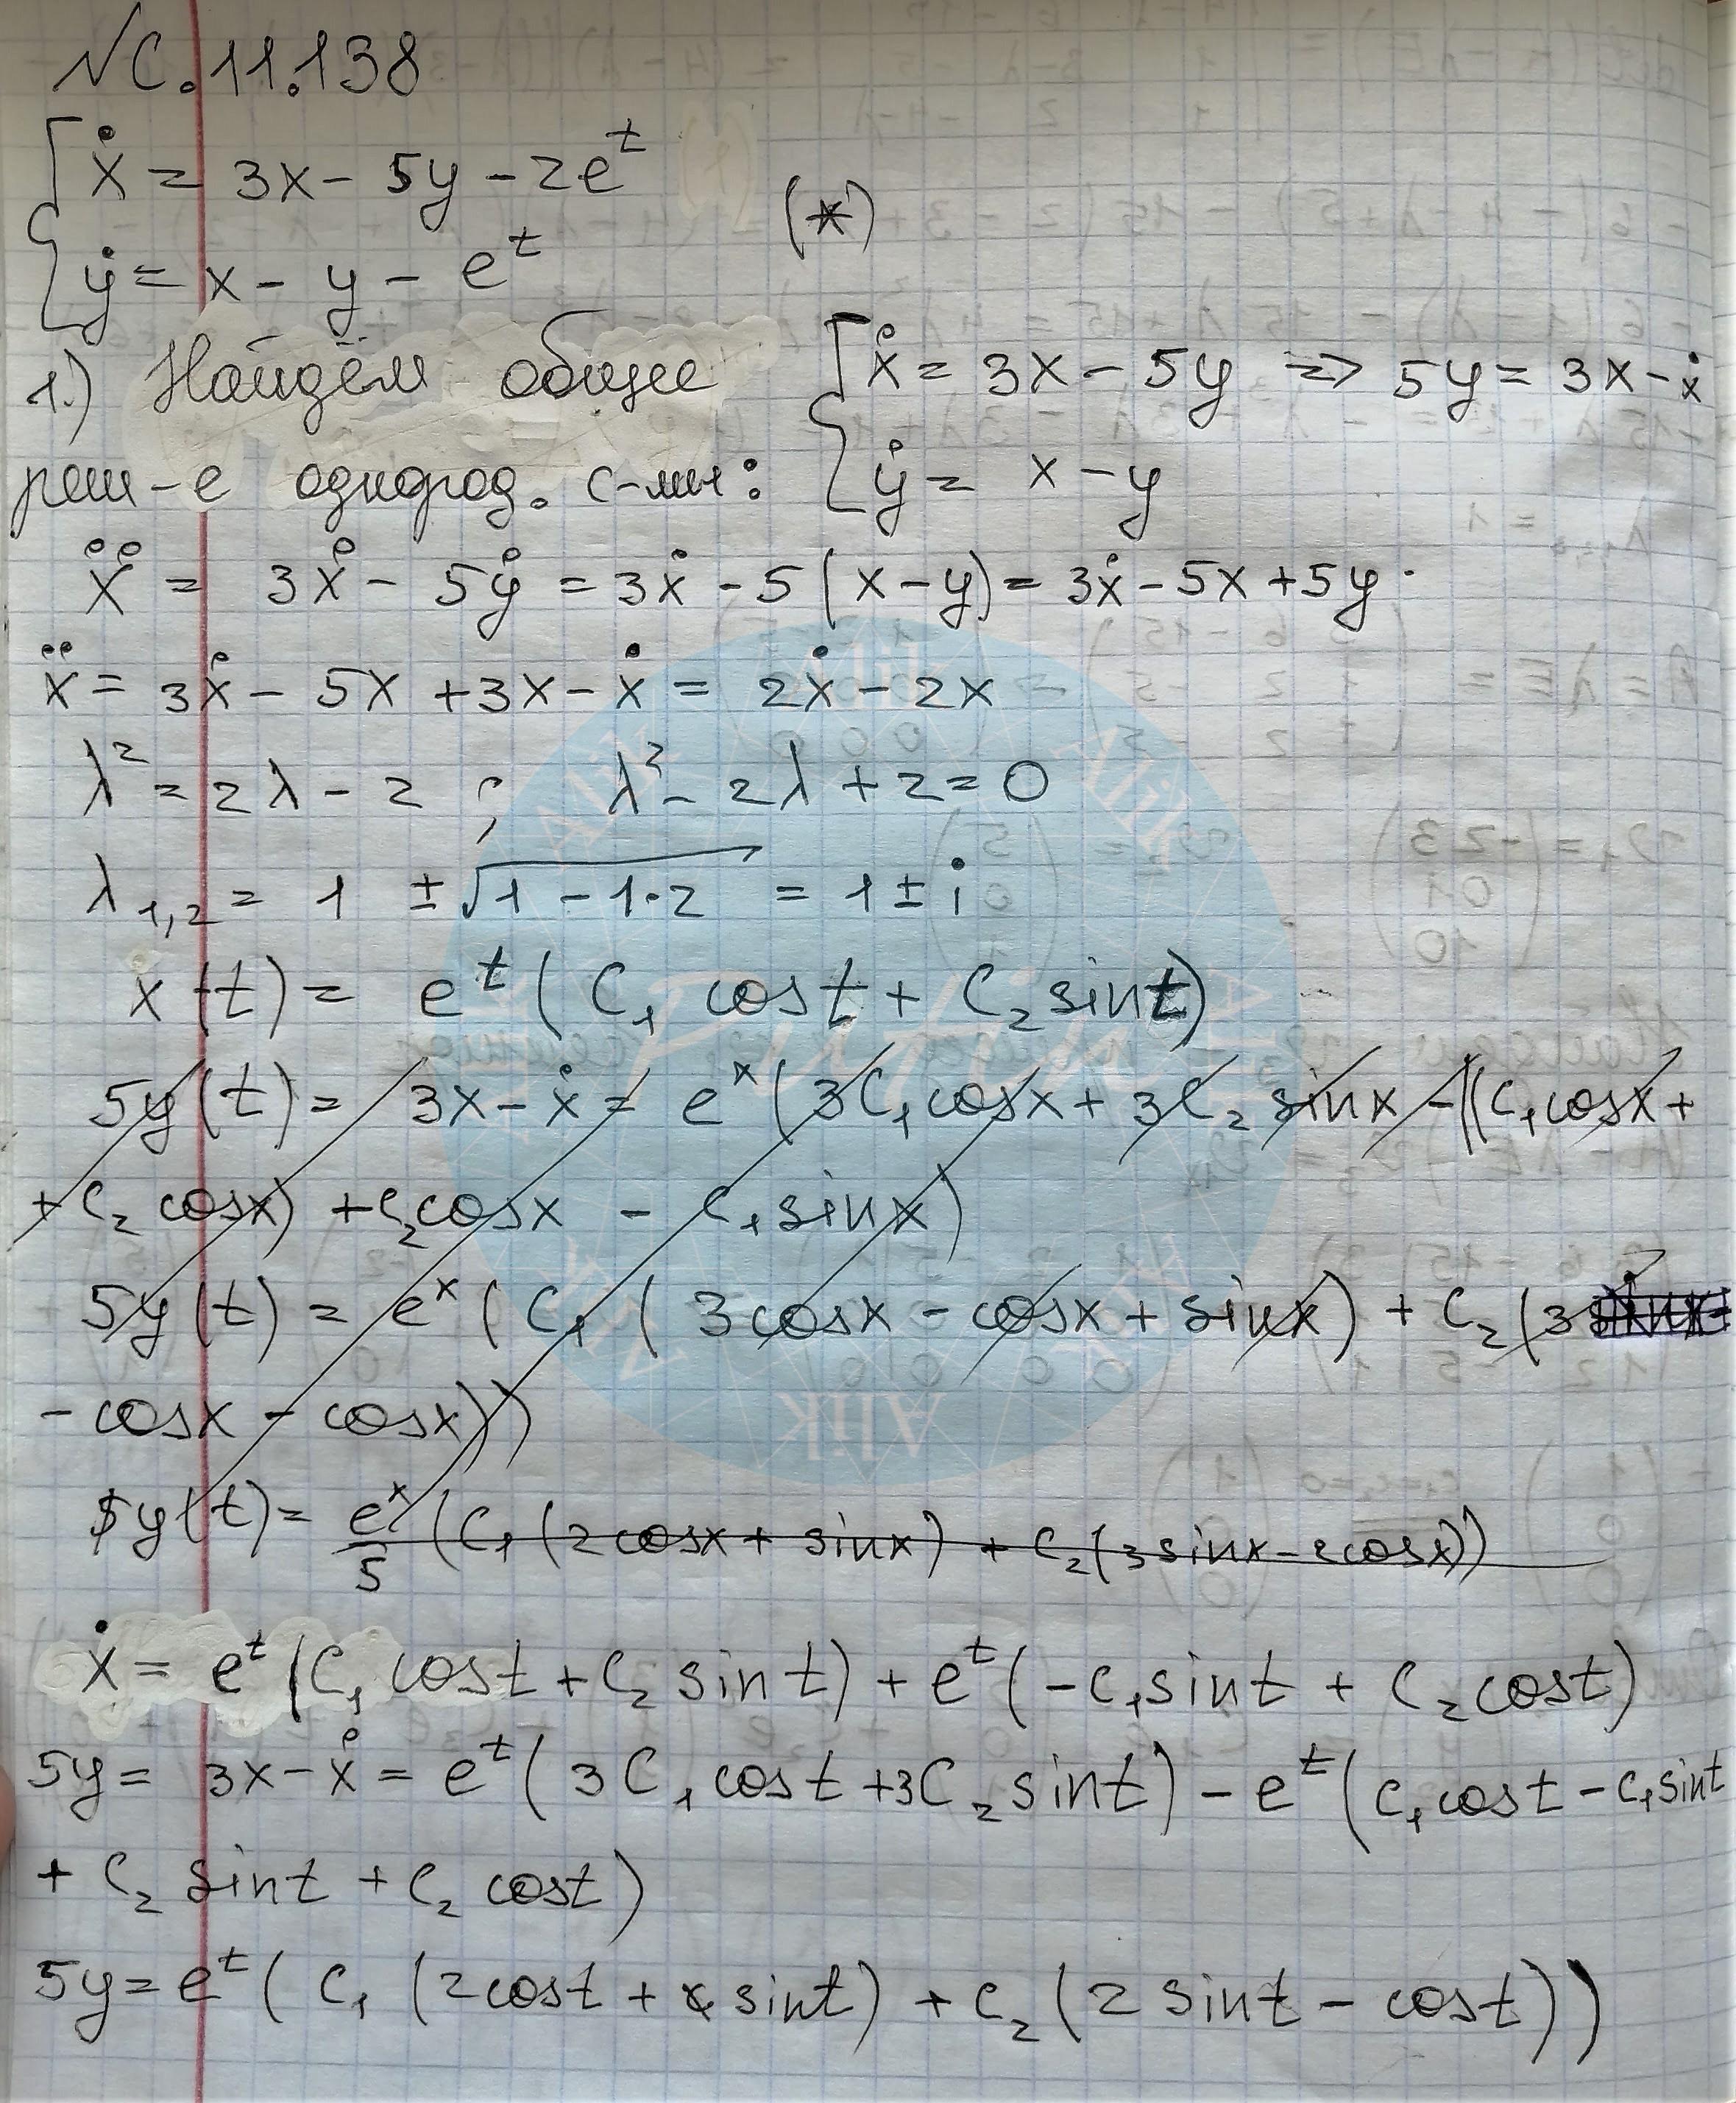 № С.11.138
ẋ = 3x - 5y - 2e^t
(*)
ẏ = x - y - e^t
1.) Найдём общее
реш-е однород. с-мы:
ẋ = 3x - 5y => 5y = 3x - ẋ
ẏ = x - y
ẍ = 3ẋ - 5ẏ = 3ẋ - 5(x - y) = 3ẋ - 5x + 5y
ẍ = 3ẋ - 5x + 3x - ẋ = 2ẋ - 2x
λ² = 2λ - 2 ; λ² - 2λ + 2 = 0
λ₁,₂ = 1 ± √(1 - 1·2) = 1 ± i
x(t) = e^t (C₁ cos t + C₂ sin t)
5y(t) = 3x - ẋ = e^x (3C₁ cosx + 3C₂ sinx - ((C₁ cosx +
+ C₂ cosx) + C₂ cosx - C₁ sinx)
5y(t) = e^x (C₁ (3cosx - cosx + sinx) + C₂ (3
- cosx - cosx))
y(t) = e^x/5 (C₁ (2cosx + sinx) + C₂ (3sinx - 2cosx))
ẋ = e^t (C₁ cos t + C₂ sin t) + e^t (-C₁ sin t + C₂ cos t)
5y = 3x - ẋ = e^t (3C₁ cos t + 3C₂ sin t) - e^t (C₁ cos t - C₁ sin t
+ C₂ sin t + C₂ cos t)
5y = e^t (C₁ (2cos t + sin t) + C₂ (2 sin t - cos t))